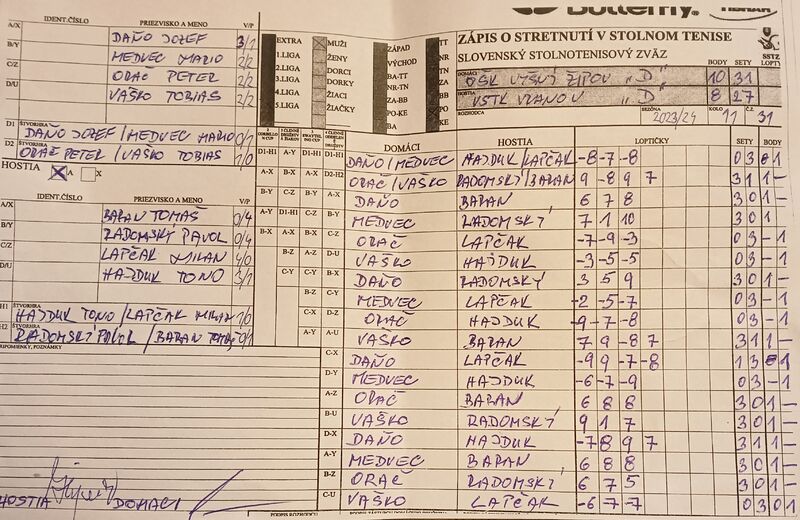 Butterfly
TIBHAR
ZÁPIS O STRETNUTÍ V STOLNOM TENISE
SLOVENSKÝ STOLNOTENISOVÝ ZVÄZ
SSTZ
BODY SETY LOPTY
DOMÁCI OŠK VYŠNÝ ŽIPOV „D" 10 31
HOSTIA VSTK VRANOV „D" 8 27
ROZHODCA SEZÓNA 2023/24 KOLO 11 31
EXTRA MUŽI ZÁPAD TT
1.LIGA ŽENY VÝCHOD NR
2.LIGA DORCI BA-TT TN
3.LIGA DORKY NR-TN ZA
4.LIGA ŽIACI ZA-BB BB
5.LIGA ŽIAČKY PO-KE PO
BA KE
IDENT.ČÍSLO PRIEZVISKO A MENO V/P
A/X DAŇO JOZEF 3/1
B/Y MEDVEC MARIO 2/2
C/Z ORAČ PETER 2/2
D/U VAŠKO TOBIAS 2/2
D1 ŠTVORHRA DAŇO JOZEF / MEDVEC MARIO 0/1
D2 ŠTVORHRA ORAČ PETER / VAŠKO TOBIAS 1/0
HOSTIA A X
IDENT.ČÍSLO PRIEZVISKO A MENO V/P
A/X BARAN TOMÁŠ 0/4
B/Y RADOMSKÝ PAVOL 0/4
C/Z LAPČAK MILAN 4/0
D/U HAJDUK TONO 3/1
H1 ŠTVORHRA HAJDUK TONO / LAPČAK MILAN 1/0
H2 ŠTVORHRA RADOMSKÝ PAVOL / BARAN TOMÁŠ 0/1
PRIPOMIENKY, POZNÁMKY
HOSTIA DOMÁCI
DOMÁCI HOSTIA LOPTIČKY SETY BODY
D1-H1 A-Y D1-H1 D1-H1 DAÑO/MEDVEC HAJDUK/LAPČAK -8 -7 -8 0 3 0 1
A-X B-X A-X D2-H2 ORAČ/VAŠKO RADOMSKÝ/BARAN 9 -8 9 7 3 1 1 -
B-Y C-Z B-Y A-X DAÑO BARAN 6 7 8 3 0 1 -
A-Y D1-H1 C-Z B-Y MEDVEC RADOMSKÝ 7 1 10 3 0 1
B-X A-X B-X C-Z ORAČ LAPČAK -7 -9 -3 0 3 - 1
B-Z A-Z D-U VAŠKO HAJDUK -3 -5 -5 0 3 - 1
C-Y C-Y B-X DAÑO RADOMSKÝ 3 5 9 3 0 1 -
B-Z C-Y MEDVEC LAPČAK -2 -5 -7 0 3 - 1
C-X D-Z ORAČ HAJDUK -9 -7 -8 0 3 - 1
A-Y A-U VAŠKO BARAN 7 9 -8 7 3 1 1 -
C-X DAÑO LAPČAK -9 9 -7 -8 1 3 0 1
D-Y MEDVEC HAJDUK -6 -7 -9 0 3 - 1
A-Z ORAČ BARAN 6 8 8 3 0 1 -
B-U VAŠKO RADOMSKÝ 9 1 7 3 0 1 -
D-X DAÑO HAJDUK -7 8 9 7 3 1 1 -
A-Y MEDVEC BARAN 6 8 8 3 0 1 -
B-Z ORAČ RADOMSKÝ 6 7 5 3 0 1 -
C-U VAŠKO LAPČAK -6 -7 -7 0 3 0 1